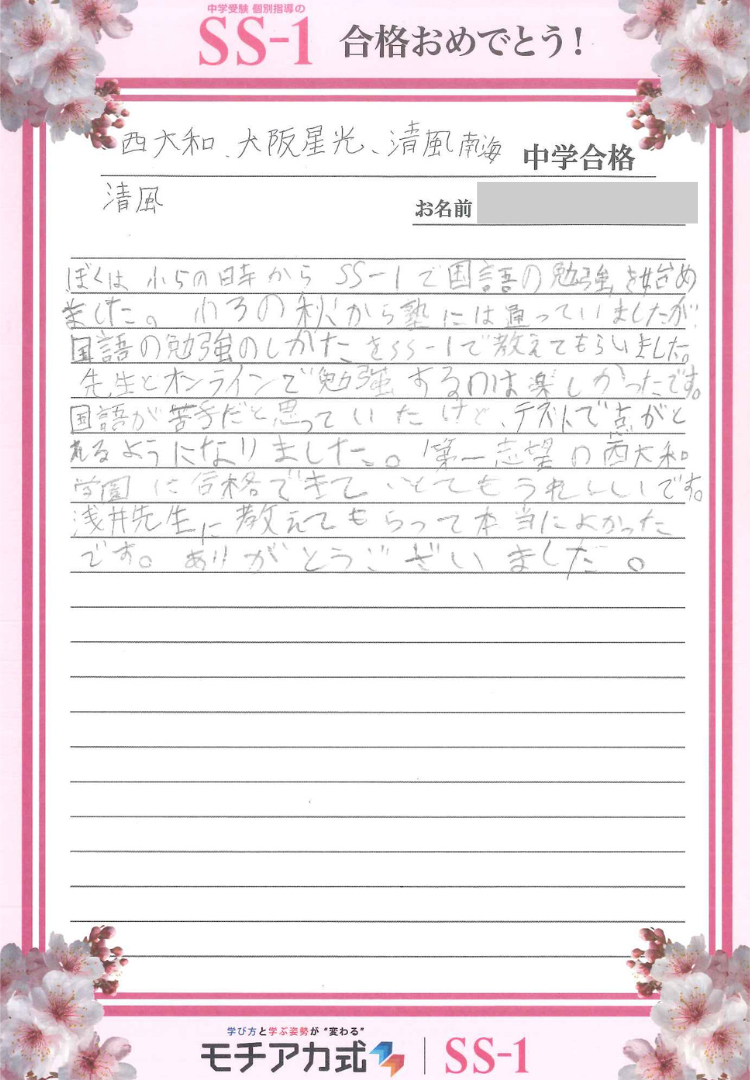 中学受験 個別指導の
SS-1 合格おめでとう!
西大和、大阪星光、清風南海 中学合格
清風
お名前
ぼくは小5の時から SS-1で国語の勉強を始め
ました。小3の秋から塾には通っていましたが
国語の勉強のしかたをSS-1で教えてもらいました。
先生とオンラインで勉強するのは楽しかったです。
国語が苦手だと思っていたけど、テストで点がと
れるようになりました。第一志望の西大和
学園に合格できてとてもうれしいです。
浅井先生に教えてもらって本当によかった
です。ありがとうございました。
学び方と学ぶ姿勢が“変わる”
モチアカ式 SS-1